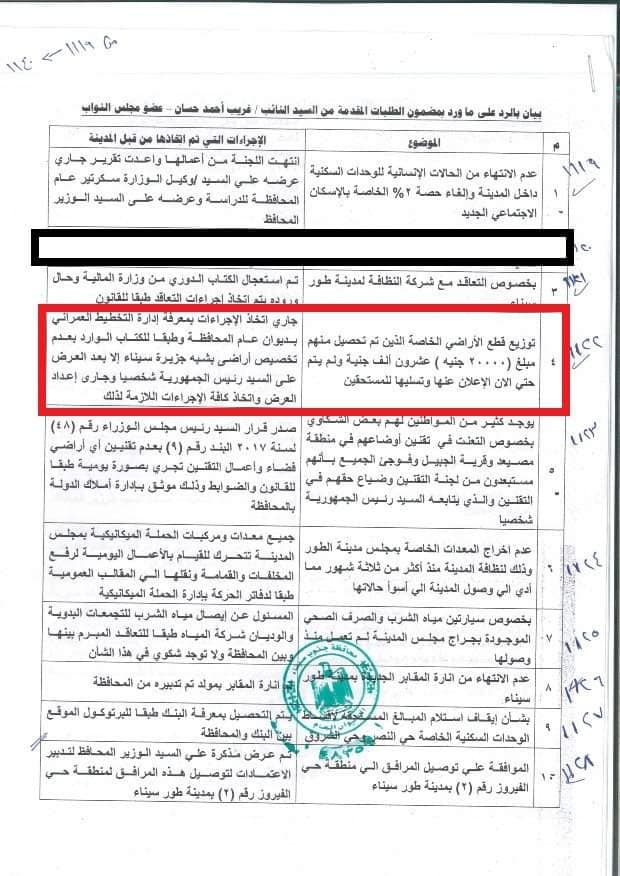 من ١١١٩ ← ١١٤٠
بيان بالرد على ما ورد بمضمون الطلبات المقدمة من السيد النائب / غريب أحمد حسان – عضو مجلس النواب
م
الموضوع
الإجراءات التي تم اتخاذها من قبل المدينة
١١١٩
١
عدم الانتهاء من الحالات الإنسانية للوحدات السكنية
داخل المدينة وإلغاء حصة ٢% الخاصة بالإسكان
الاجتماعي الجديد
انتهت اللجنة من أعمالها واعدت تقرير جاري
عرضه علي السيد /وكيل الوزارة سكرتير عام
المحافظة للدراسة وعرضه على السيد الوزير
المحافظ
٣
بخصوص التعاقد مع شركة النظافة لمدينة طور
سيناء
تم استعجال الكتاب الدوري من وزارة المالية وحال
وروده يتم اتخاذ إجراءات التعاقد طبقا للقانون
٤
توزيع قطع الأراضي الخاصة الذين تم تحصيل منهم
مبلغ (٢٠٠٠٠ جنيه ) عشرون ألف جنية ولم يتم
حتي الان الإعلان عنها وتسليها للمستحقين
جاري اتخاذ الإجراءات بمعرفة إدارة التخطيط العمراني
بديوان عام المحافظة وطبقا للكتاب الوارد بعدم
تخصيص أراضي بشبه جزيرة سيناء إلا بعد العرض
على السيد رئيس الجمهورية شخصيا وجارى إعداد
العرض واتخاذ كافة الإجراءات اللازمة لذلك
١١٢٢
٥
يوجد كثير من المواطنين لهم بعض الشكاوي
بخصوص التعنت في تقنين أوضاعهم في منطقة
مصيعد وقرية الجبيل وفوجئ الجميع بأنهم
مستبعدون من لجنة التقنين وضياع حقهم في
التقنين والذي يتابعه السيد رئيس الجمهورية
شخصيا
صدر قرار السيد رئيس مجلس الوزراء رقم (٤٨)
لسنة ٢٠١٧ البند رقم (٩) بعدم تقنيين أي أراضي
فضاء وأعمال التقنين تجري بصورة يومية طبقا
للقانون والضوابط وذلك موثق بإدارة أملاك الدولة
بالمحافظة
١١٢٣
٦
عدم اخراج المعدات الخاصة بمجلس مدينة الطور
وذلك لنظافة المدينة منذ أكثر من ثلاثة شهور مما
أدي الي وصول المدينة الي أسوأ حالاتها
جميع معدات ومركبات الحملة الميكانيكية بمجلس
المدينة تتحرك للقيام بالأعمال اليومية لرفع
المخلفات والقمامة ونقلها الي المقالب العمومية
طبقا لدفاتر الحركة بإدارة الحملة الميكانيكية
١١٢٤
٧
بخصوص سيارتين مياه الشرب والصرف الصحي
الموجودة بجراج مجلس المدينة لم تعمل منذ
وصولها
المسئول عن إيصال مياه الشرب للتجمعات البدوية
والوديان شركة المياه طبقا للتعاقد المبرم بينها
وبين المحافظة ولا توجد شكوي في هذا الشأن
١١٢٥
٨
عدم الانتهاء من انارة المقابر الجديدة بمدينة طور
سيناء
انارة المقابر بمولد تم تدبيره من المحافظة
١١٢٦
٩
بشأن إيقاف استلام المبالغ لأقساط
الوحدات السكنية الخاصة حي النصر وحي الشروق
يتم التحصيل بمعرفة البنك طبقا للبرتوكول الموقع
بين البنك والمحافظة
١١٢٧
١٠
الموافقة علي توصيل المرافق الي منطقة حي
الفيروز رقم (٢) بمدينة طور سيناء
تم عرض مذكرة علي السيد الوزير المحافظ لتدبير
الاعتمادات لتوصيل هذه المرافق لمنطقة حي
الفيروز رقم (٢) بمدينة طور سيناء
١١٢٨
محافظة جنوب سيناء